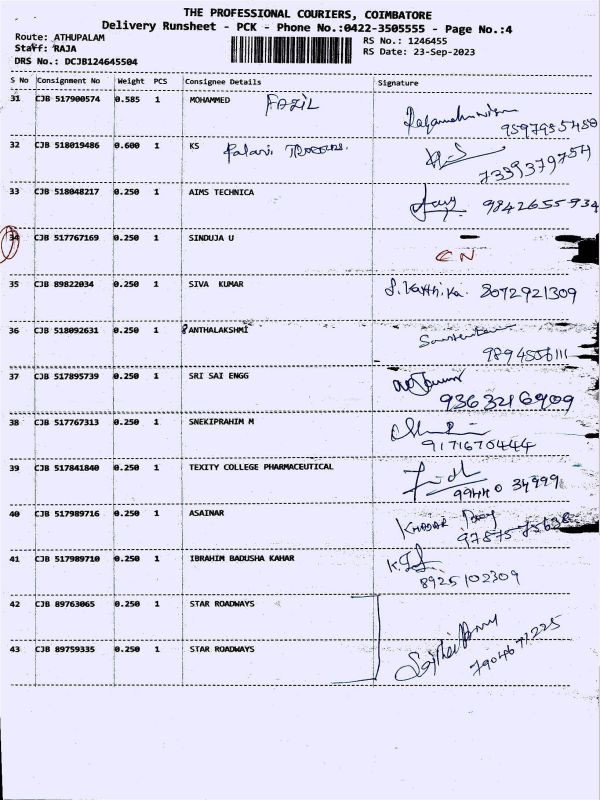 THE PROFESSIONAL COURIERS, COIMBATORE
Delivery Runsheet - PCK - Phone No.:0422-3505555 - Page No.:4
Route: ATHUPALAM RS No.: 1246455
Staff: RAJA RS Date: 23-Sep-2023
DRS No.: DCJB124645504
S No Consignment No Weight PCS Consignee Details Signature
31 CJB 517900574 0.585 1 MOHAMMED FAZIL
9597955450
32 CJB 518019486 0.600 1 KS Palani
7339379754
33 CJB 518048217 0.250 1 AIMS TECHNICA 9842655934
34 CJB 517767169 0.250 1 SINDUJA U CN
35 CJB 89822034 0.250 1 SIVA KUMAR S. Karthika 8072921309
36 CJB 518092631 0.250 1 ANTHALAKSHMI
9894556111
37 CJB 517895739 0.250 1 SRI SAI ENGG
9363216909
38 CJB 517767313 0.250 1 SNEKIPRAHIM M
9171670444
39 CJB 517841840 0.250 1 TEXITY COLLEGE PHARMACEUTICAL
99440 34999
40 CJB 517989716 0.250 1 ASAINAR
41 CJB 517989710 0.250 1 IBRAHIM BADUSHA KAHAR
8925102309
42 CJB 89763065 0.250 1 STAR ROADWAYS
43 CJB 89759335 0.250 1 STAR ROADWAYS 7904671225